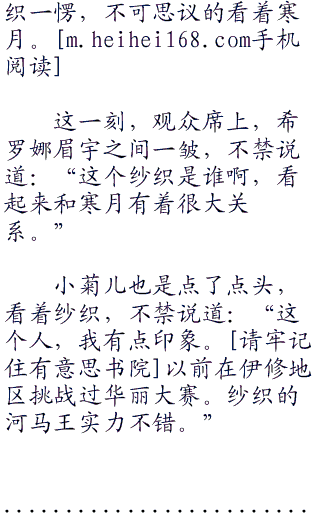 织一愣，不可思议的看着寒
月。[m.heihei168.com手机
阅读]
这一刻，观众席上，希
罗娜眉宇之间一皱，不禁说
道：“这个纱织是谁啊，看
起来和寒月有着很大关
系。”
小菊儿也是点了点头，
看着纱织，不禁说道：“这
个人，我有点印象。[请牢记
住有意思书院]以前在伊修地
区挑战过华丽大赛。纱织的
河马王实力不错。”
.........................